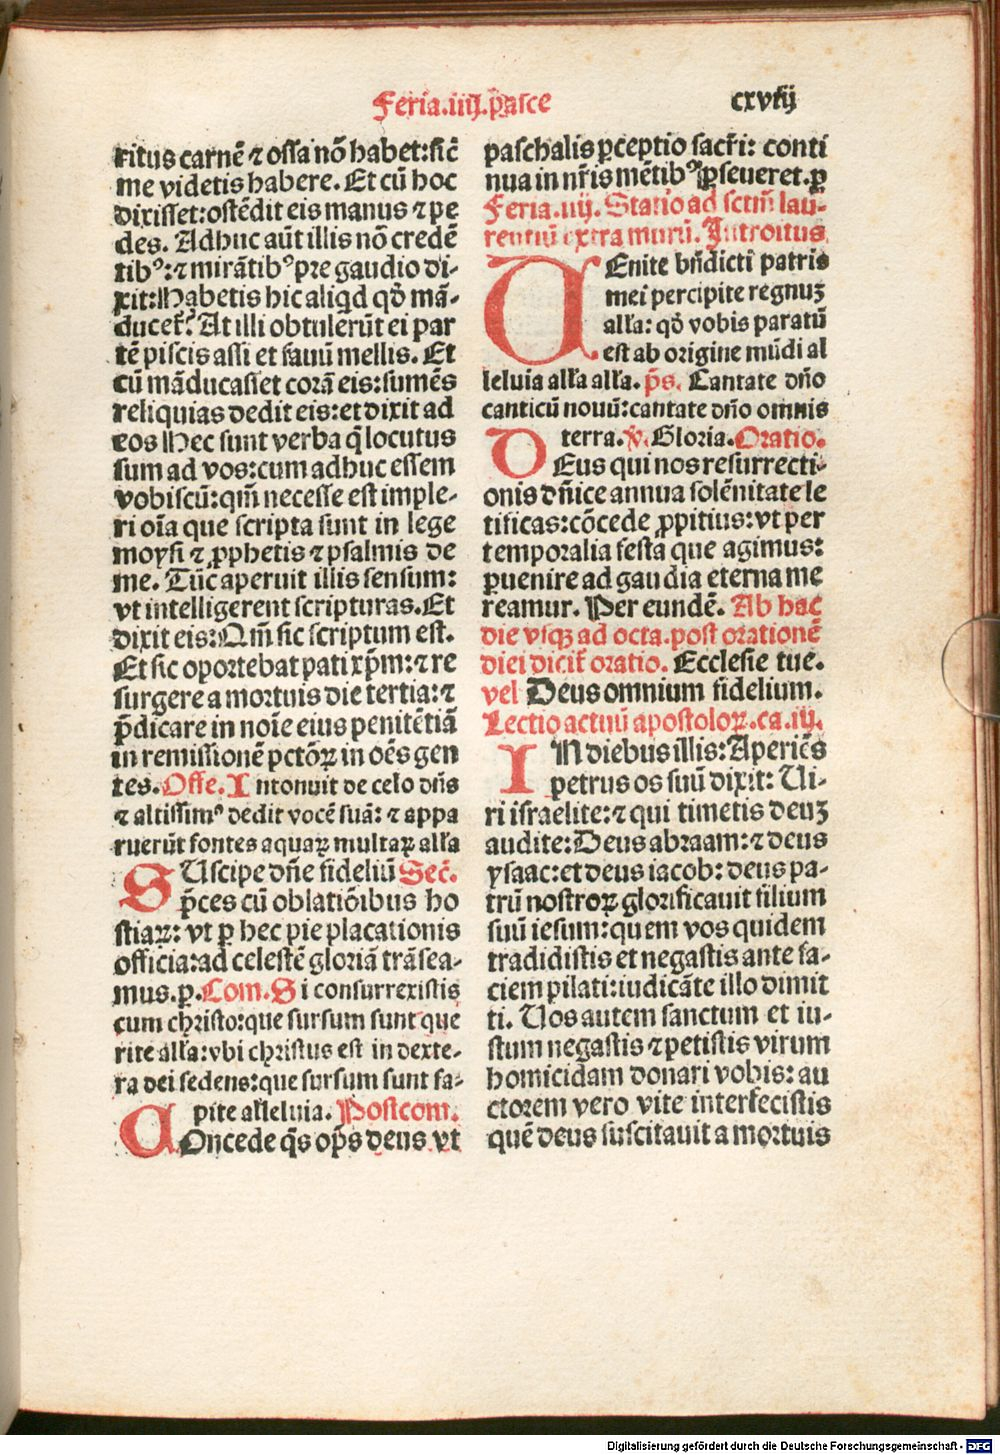 Feria.iiij.pasce
cxviij
ritus carnē ⁊ ossa nō habet:sic̄
me videtis habere. Et cū hoc
dixisset:ostēdit eis manus ⁊ pe
des. Adhuc aūt illis nō credē
tibꝰ:⁊ mirātibꝰ pre gaudio di-
xit:Habetis hic aliqd qd̄ mā-
ducet̄? At illi obtulerūt ei par
tē piscis assi et fauū mellis. Et
cū māducasset corā eis:sumēs
reliquias dedit eis:et dixit ad
eos Hec sunt verba q̄ locutus
sum ad vos:cum adhuc essem
vobiscū:qm̄ necesse est imple-
ri oīa que scripta sunt in lege
moysi ⁊ ꝓphetis ⁊ psalmis de
me. Tūc aperuit illis sensum:
vt intelligerent scripturas. Et
dixit eis:Qm̄ sic scriptum est.
Et sic oportebat pati xp̄m:⁊ re
surgere a mortuis die tertia:⁊
p̄dicare in noīe eius penitētiā
in remissionē pctōꝝ in oēs gen
tes. Offe. Intonuit de celo dn̄s
⁊ altissimꝰ dedit vocē suā: ⁊ appa
ruerūt fontes aquaꝝ multaꝝ alľa
SUscipe dn̄e fideliū Sec̄.
p̄ces cū oblatiōibus ho
stiaꝝ: vt ꝑ hec pie placationis
officia:ad celestē gloriā trāsea-
mus.ꝑ. Com. Si consurrexistis
cum christo:que sursum sunt que
rite alľa:vbi christus est in dexte-
ra dei sedens:que sursum sunt sa-
pite alleluia. Postcom.
COncede q̄s op̄s deus vt
paschalis ꝑceptio sacr̄i: conti
nua in nr̄is mētibꝰ ꝑseueret.ꝑ
Feria.iiij. Statio ad sctm̄ lau-
rentiū extra murū. Introitus
VEnite bn̄dicti patris
mei percipite regnuꝫ
alľa: qd̄ vobis paratū
est ab origine mūdi al
leluia alľa alľa. p̄s. Cantate dn̄o
canticū nouū:cantate dn̄o omnis
terra. v̄. Gloria. Oratio.
DEus qui nos resurrecti-
onis dn̄ice annua solēnitate le
tificas:cōcede ꝓpitius:vt per
temporalia festa que agimus:
ꝑuenire ad gaudia eterna me
reamur. Per eundē. Ab hac
die vsqꝫ ad octa.post orationē
diei dicit̄ oratio. Ecclesie tue.
vel Deus omnium fidelium.
Lectio actuū apostoloꝝ.ca.iij.
IN diebus illis:Aperiēs
petrus os suū dixit: Ui-
ri israelite:⁊ qui timetis deuꝫ
audite:Deus abraam:⁊ deus
ysaac:et deus iacob: deus pa-
trū nostroꝝ glorificauit filium
suū iesum:quem vos quidem
tradidistis et negastis ante fa-
ciem pilati:iudicāte illo dimit
ti. Uos autem sanctum et iu-
stum negastis ⁊ petistis virum
homicidam donari vobis: au
ctorem vero vite interfecistis
quē deus suscitauit a mortuis
Digitalisierung gefördert durch die Deutsche Forschungsgemeinschaft - DFG